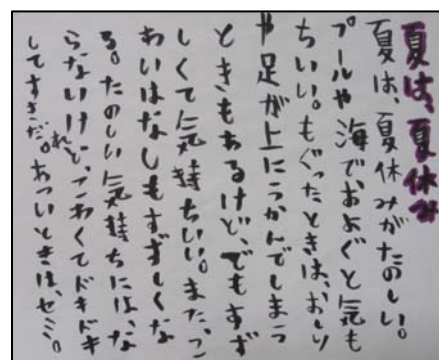 夏は、夏休み
夏は、夏休みがたのしい。
プールや海でおよぐと気も
ちいい。もぐったときは、おしり
や足が上にうかんでしまう
ときもあるけど、でもすず
しくて気持ちいい。また、こ
わいはなしもすずしくな
る。たのしい気持ちには、な
らないけれど、こわくてドキドキ
してすきだ。あついときは、セミ。